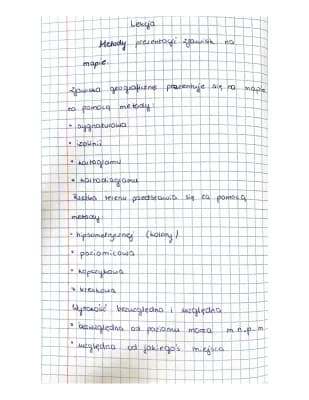 Lekcja
Metody prezentacji zjawisk na
mapie.
Zjawiska geograficzne prezentuje się na mapie
za pomocą metody:
• sygnaturowa
• izolinii
• kartogramu
• kartodiagramu
Rzeźba terenu przedstawia się za pomocą
metody:
• hipsometrycznej (kolory)
• poziomicowa
• kopczykowa
• kreskowa
Wysokość bezwzględna i względna
• bezwzględna od poziomu morza m n.p.m
• względna od jakiegoś miejsca